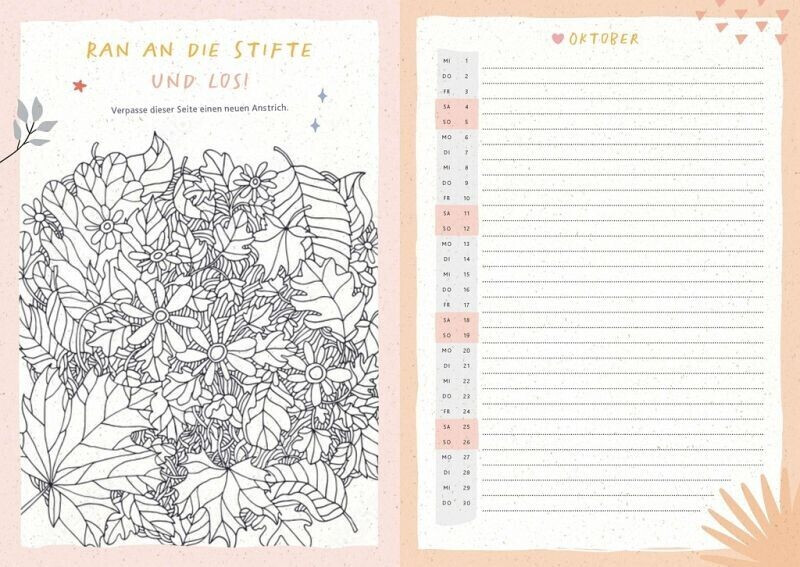 RAN AN DIE STIFTE
UND LOS!
Verpasse dieser Seite einen neuen Anstrich.
OKTOBER
MI 1
DO 2
FR 3
SA 4
SO 5
MO 6
DI 7
MI 8
DO 9
FR 10
SA 11
SO 12
MO 13
DI 14
MI 15
DO 16
FR 17
SA 18
SO 19
MO 20
DI 21
MI 22
DO 23
FR 24
SA 25
SO 26
MO 27
DI 28
MI 29
DO 30